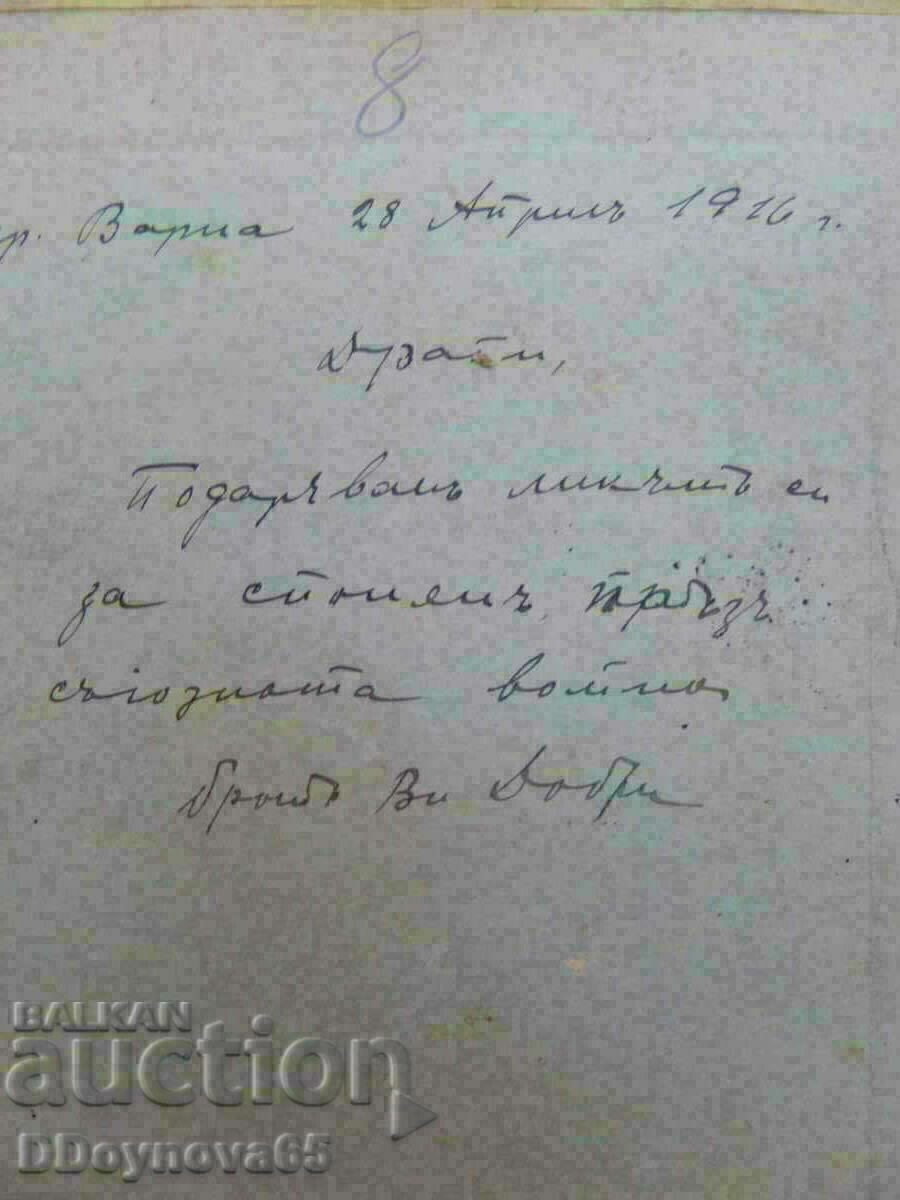 8
гр. Варна 28 Априлъ 1916 г.
Драги,
Подарѫвамъ ликътъ си
за споменъ прѣзъ
съюзната война
братъ Ви Добри
BALKAN
auction
DDoynova65